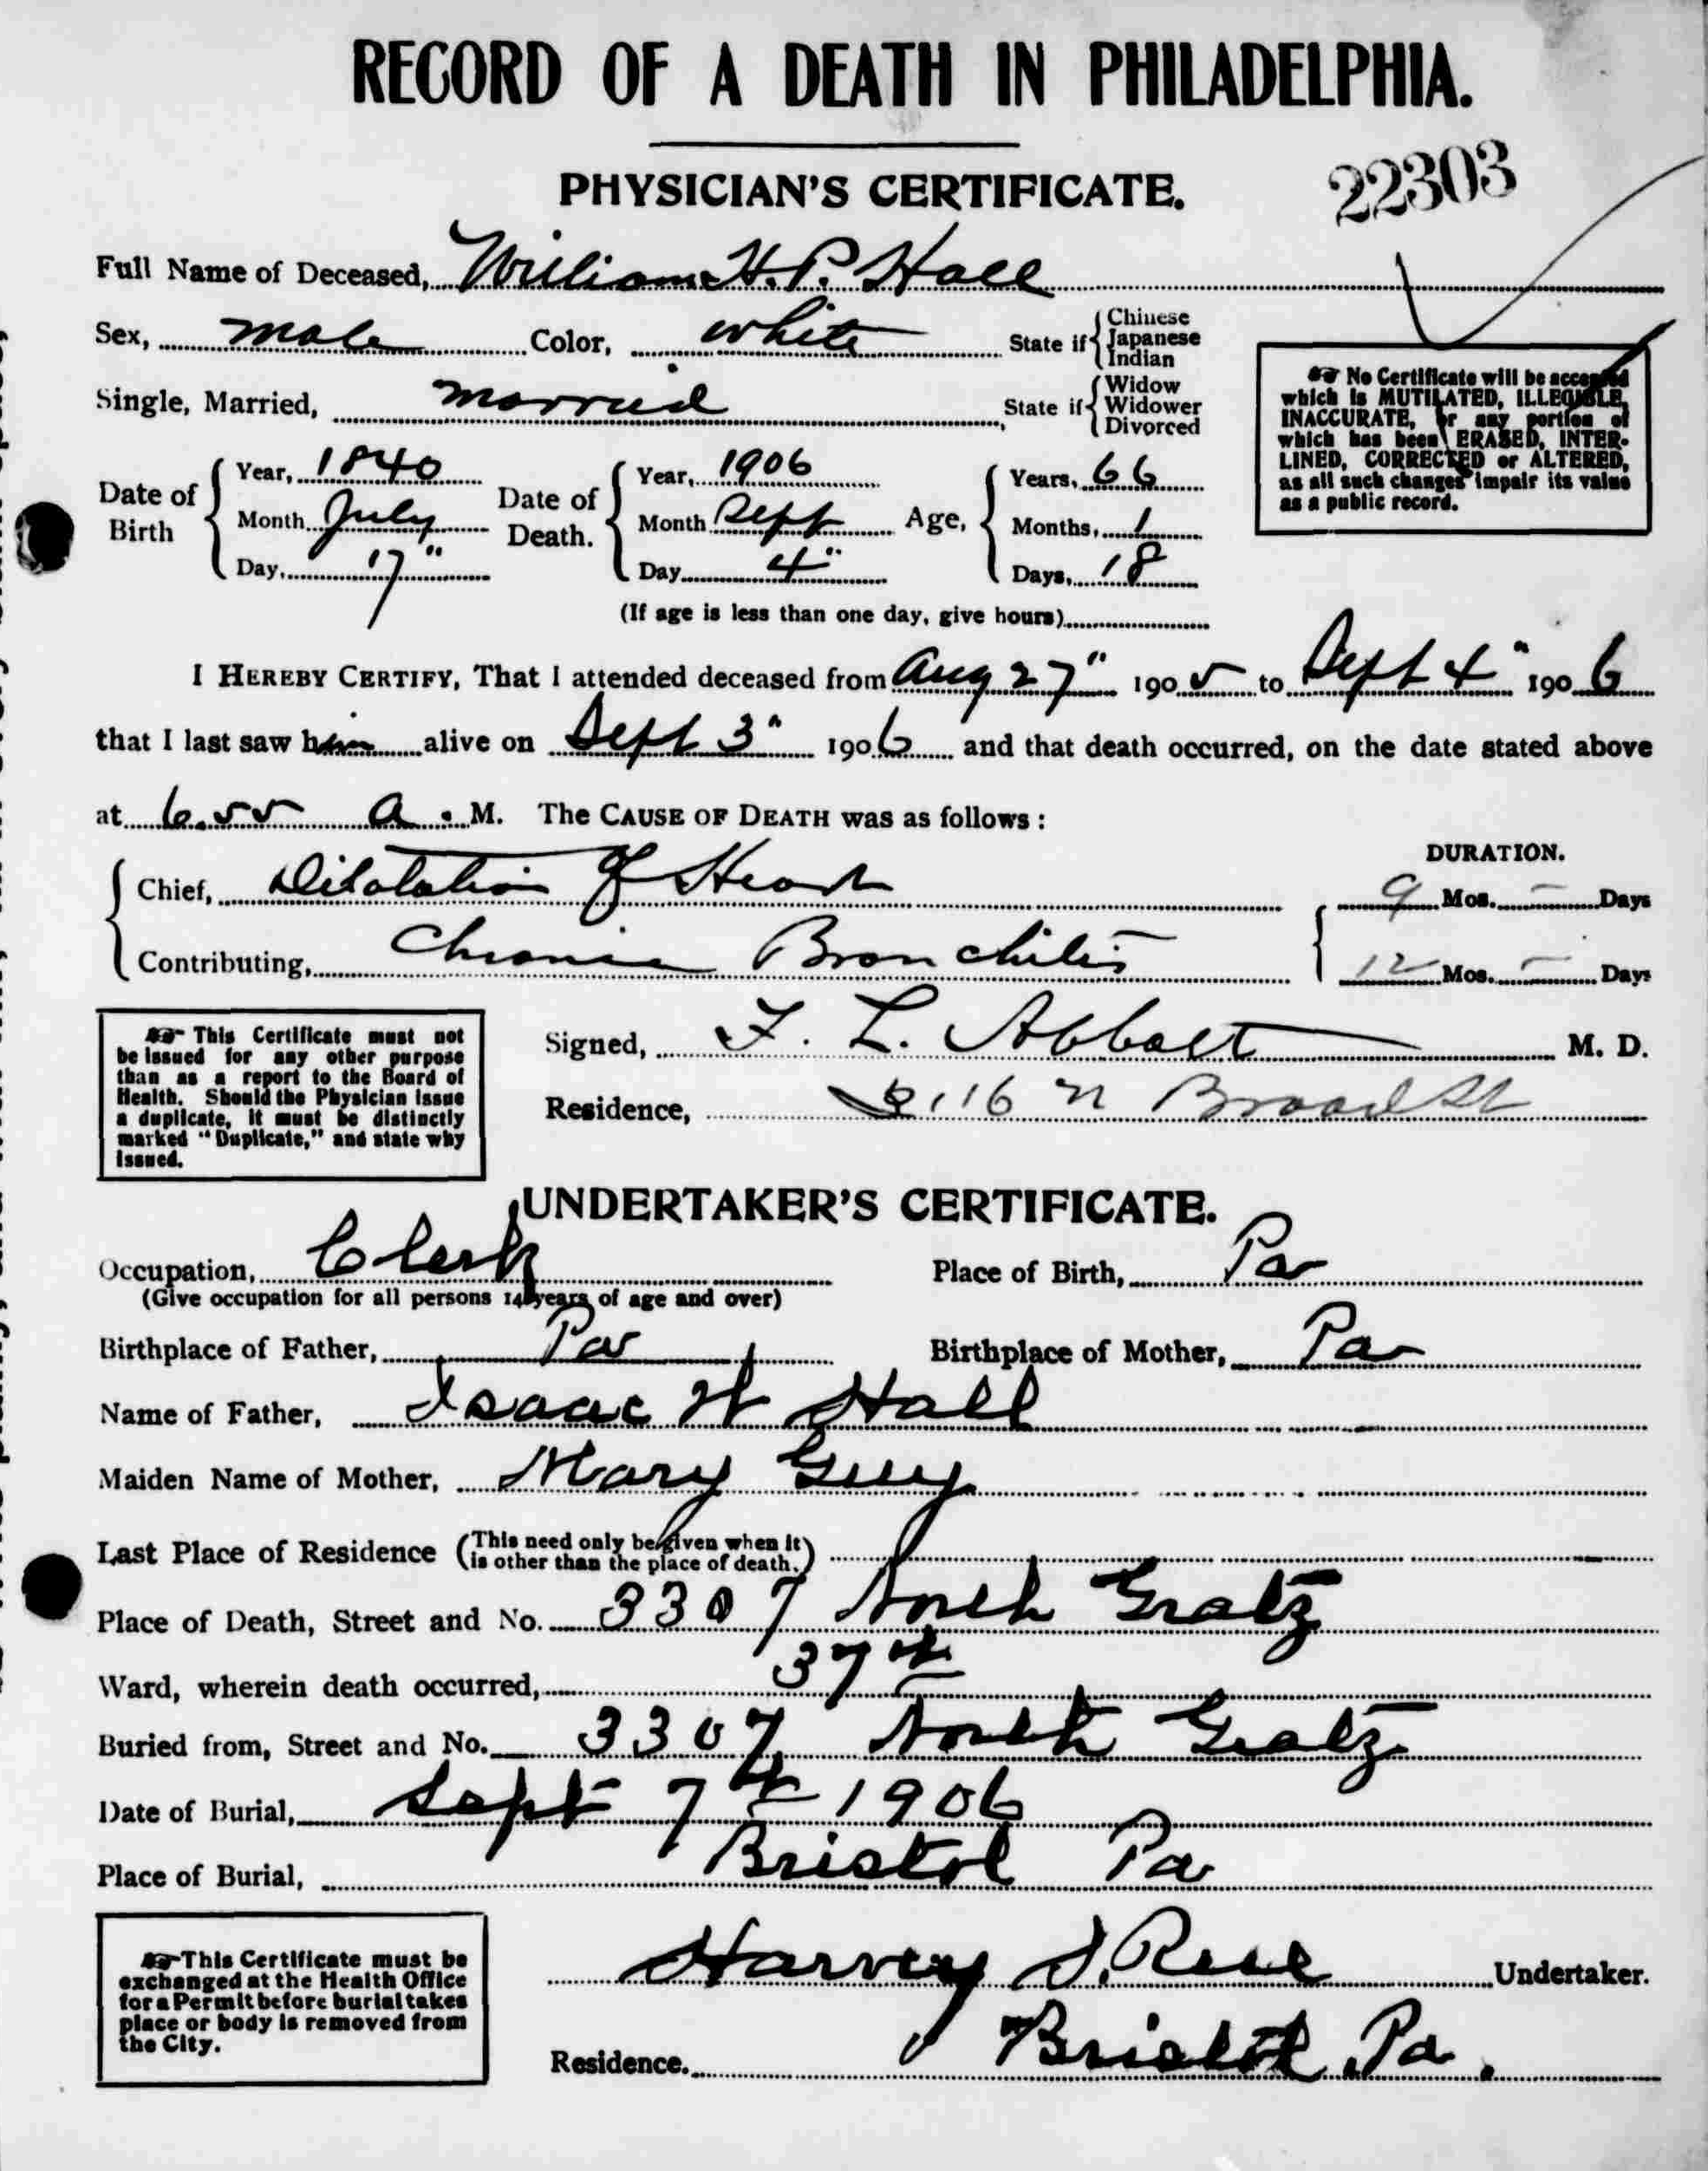 RECORD OF A DEATH IN PHILADELPHIA.
PHYSICIAN'S CERTIFICATE.
22303
Full Name of Deceased, William H. P. Hall
Sex, male Color, white State if { Chinese Japanese Indian
Single, Married, married State if { Widow Widower Divorced
☞ No Certificate will be accepted
which is MUTILATED, ILLEGIBLE,
INACCURATE, or any portion of
which has been ERASED, INTER-
LINED, CORRECTED or ALTERED,
as all such changes impair its value
as a public record.
Date of Birth { Year, 1840 Month July Day, 17"
Date of Death. { Year, 1906 Month Sept Day 4"
Age, { Years, 66 Months, 1 Days, 18
(If age is less than one day, give hours)
I HEREBY CERTIFY, That I attended deceased from Aug 27" 1905 to Sept 4" 1906
that I last saw him alive on Sept 3" 1906 and that death occurred, on the date stated above
at 6.55 a. M. The CAUSE OF DEATH was as follows:
DURATION.
Chief, Dilatation of Heart 9 Mos. — Days
Contributing, Chronic Bronchitis 12 Mos. — Days
☞ This Certificate must not
be issued for any other purpose
than as a report to the Board of
Health. Should the Physician issue
a duplicate, it must be distinctly
marked "Duplicate," and state why
issued.
Signed, F. L. Abbott M. D.
Residence, 3116 N Broad St
UNDERTAKER'S CERTIFICATE.
Occupation, Clerk Place of Birth, Pa
(Give occupation for all persons 14 years of age and over)
Birthplace of Father, Pa Birthplace of Mother, Pa
Name of Father, Isaac W Hall
Maiden Name of Mother, Mary Guy
Last Place of Residence (This need only be given when it is other than the place of death.)
Place of Death, Street and No. 3307 North Gratz
Ward, wherein death occurred, 37th
Buried from, Street and No. 3307 North Gratz
Date of Burial, Sept 7th 1906
Place of Burial, Bristol Pa
☞ This Certificate must be
exchanged at the Health Office
for a Permit before burial takes
place or body is removed from
the City.
Harvey S. Rue Undertaker.
Residence. Bristol Pa.